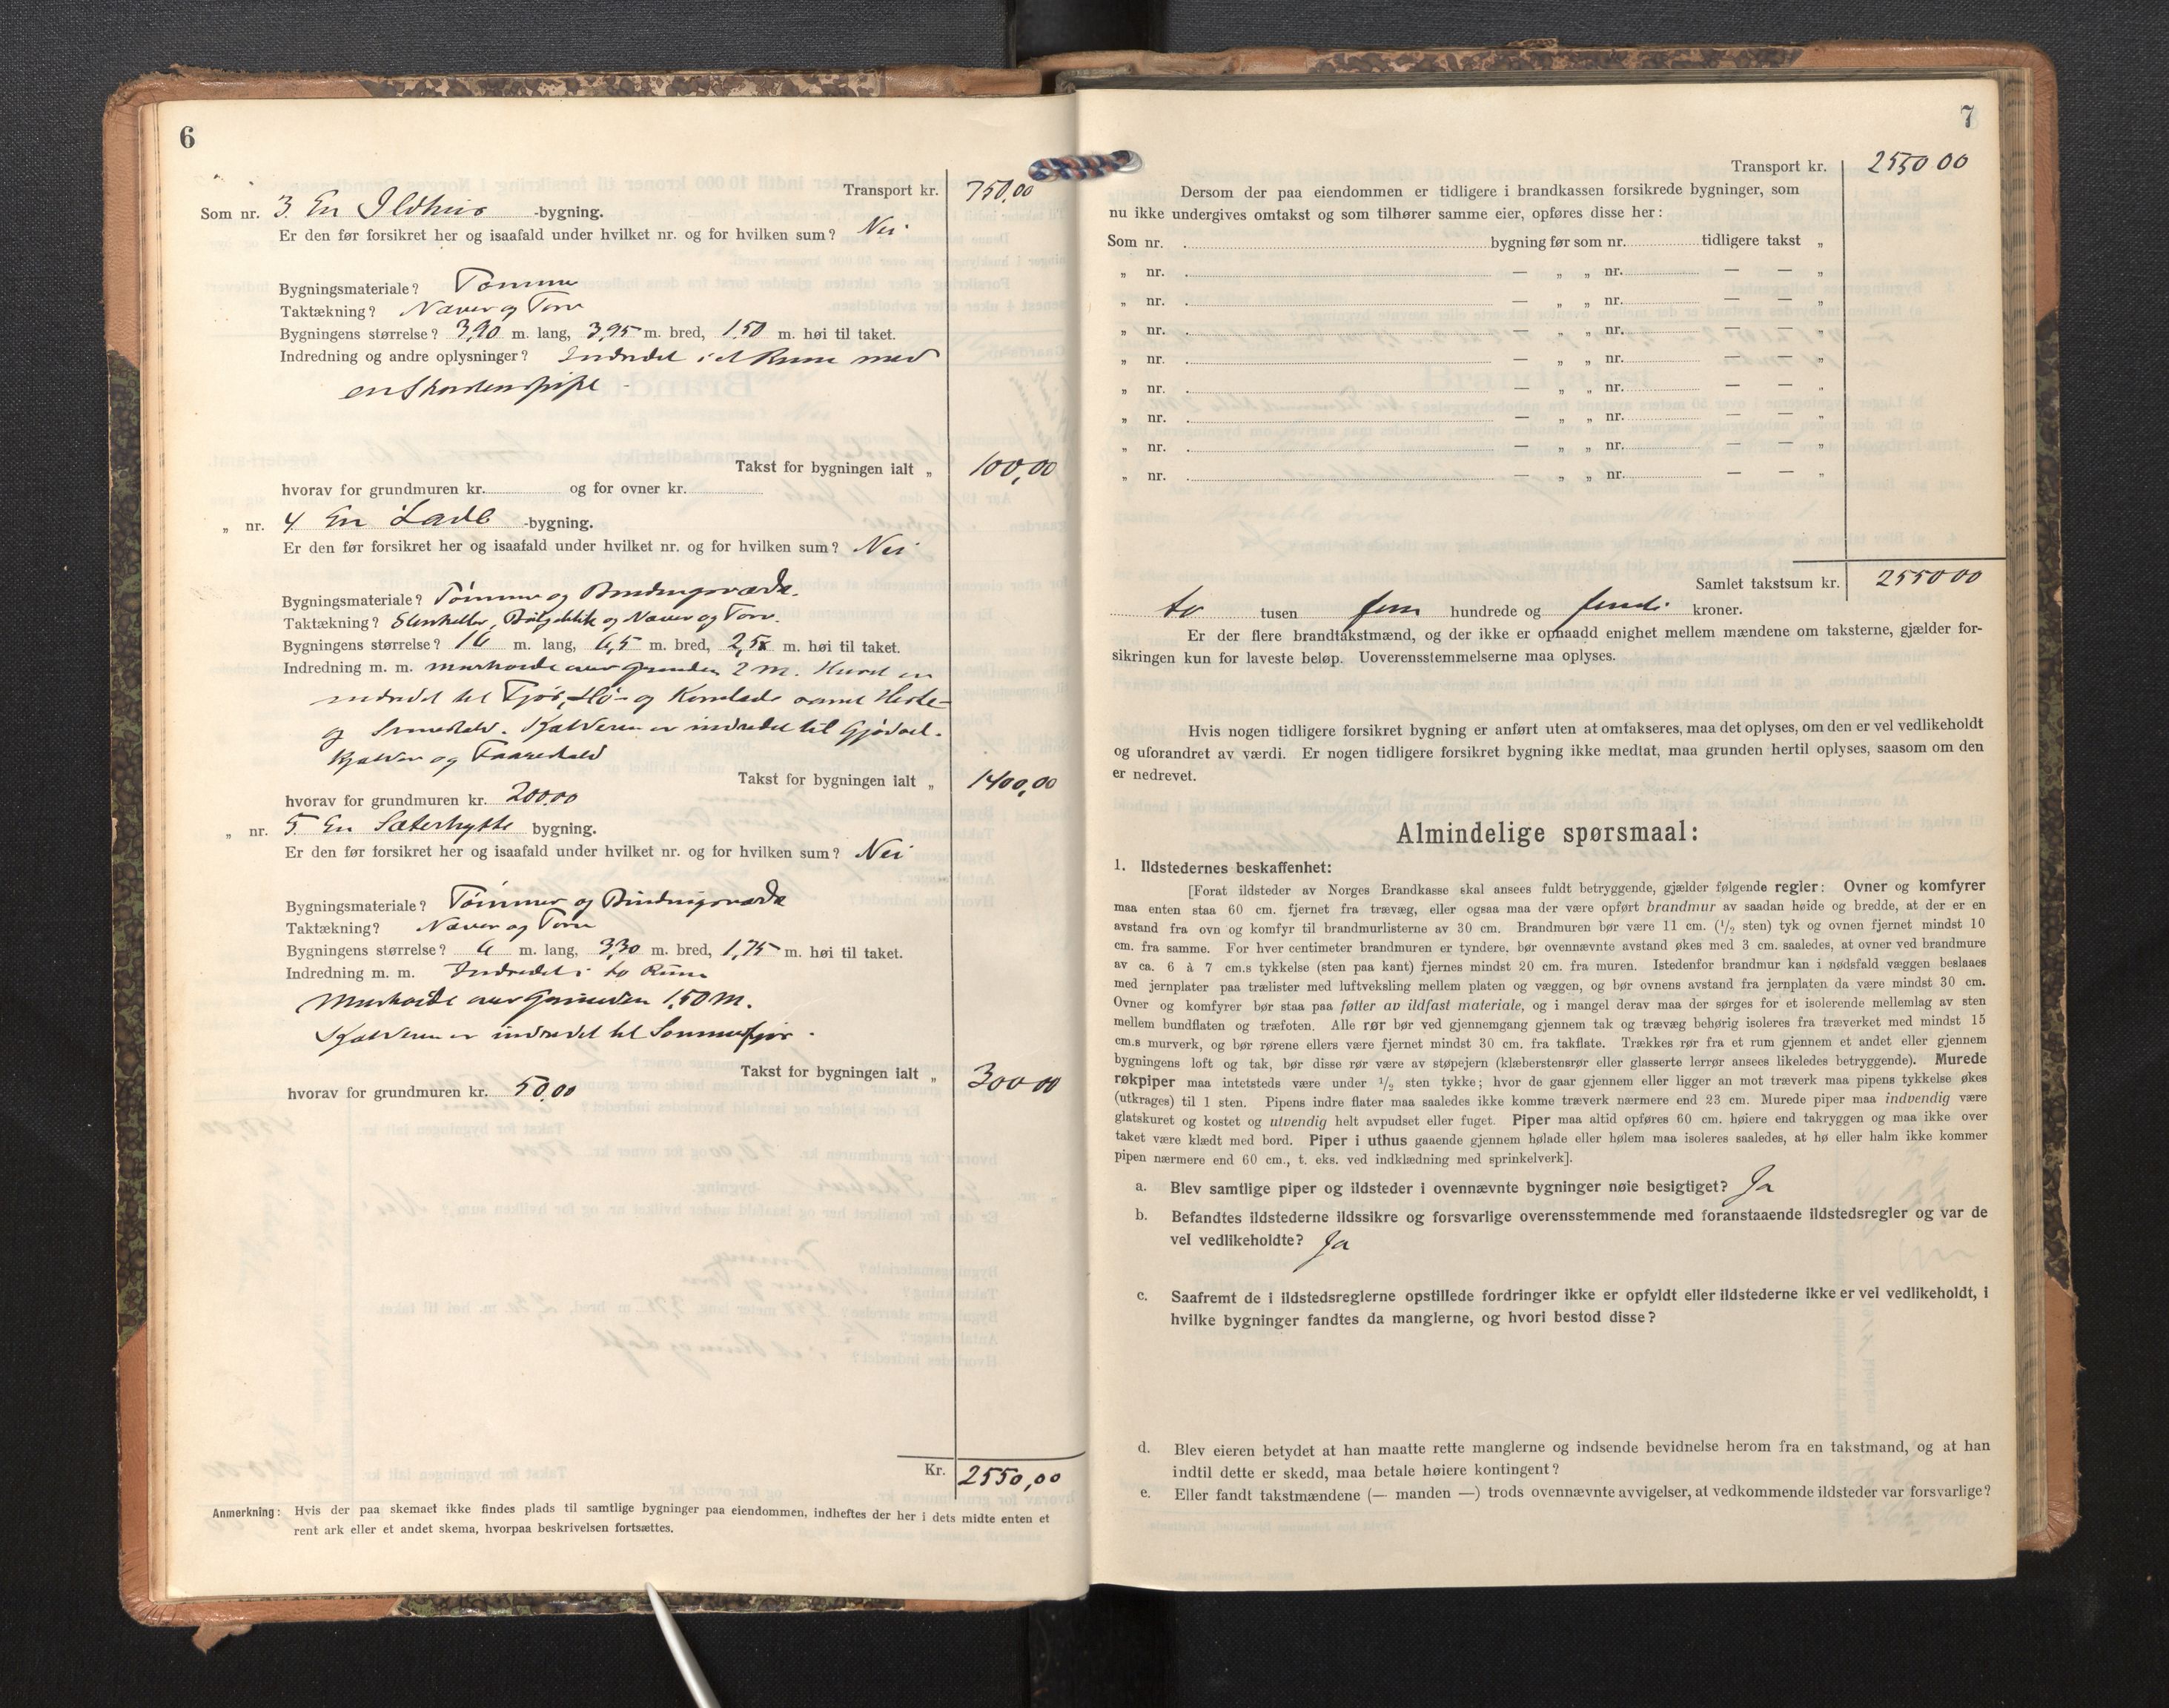 6
Transport kr. 750,00
Som nr. 3. En Ildhus -bygning.
Er den før forsikret her og isaafald under hvilket nr. og for hvilken sum? Nei
Bygningsmateriale? Tømmer
Taktækning? Næver og Torv
Bygningens størrelse? 3,90 m. lang, 3,95 m. bred, 1,50 m. høi til taket.
Indredning og andre oplysninger? Indredet i et Rum med
en Skorstenspipe -
Takst for bygningen ialt „ 100,00
hvorav for grundmuren kr. og for ovner kr.
„ nr. 4. En Lade -bygning.
Er den før forsikret her og isaafald under hvilket nr. og for hvilken sum? Nei
Bygningsmateriale? Tømmer og Bindingsværk.
Taktækning? Stenheller, Bølgeblik og Næver og Torv.
Bygningens størrelse? 16 m. lang, 6,5 m. bred, 2,5 m. høi til taket.
Indredning m. m. murhøide over Grunden 2 M. Huset er
indredet til Fjøs, Hø- og Kornlade samt Heste-
og Svinestald. Kjælderen er indredet til Gjødsel-
kjælder og Faarestald
Takst for bygningen ialt „ 1400,00
hvorav for grundmuren kr. 200.00
„ nr. 5. En Sæterhytte bygning.
Er den før forsikret her og isaafald under hvilket nr. og for hvilken sum? Nei
Bygningsmateriale? Tømmer og Bindingsværk
Taktækning? Næver og Torv
Bygningens størrelse? 6 m. lang, 3,30 m. bred, 1,75 m. høi til taket.
Indredning m. m. Indredet i to Rum
Murhøide over Grunden 1,50 M.
Kjælderen er indredet til Sommerfjøs.
Takst for bygningen ialt „ 300 00
hvorav for grundmuren kr. 50.00
Kr. 2550,00
Anmerkning: Hvis der paa skemaet ikke findes plads til samtlige bygninger paa eiendommen, indheftes der her i dets midte enten et
rent ark eller et andet skema, hvorpaa beskrivelsen fortsættes.
7
Transport kr. 2550 00
Dersom der paa eiendommen er tidligere i brandkassen forsikrede bygninger, som
nu ikke undergives omtakst og som tilhører samme eier, opføres disse her:
Som nr. bygning før som nr. tidligere takst „
„ nr. — „ „ nr. — — „
„ nr. — „ „ nr. — — „
„ nr. — „ „ nr. — — „
„ nr. — „ „ nr. — — „
„ nr. — „ „ nr. — — „
„ nr. — „ „ nr. — — „
„ nr. — „ „ nr. — — „
„ nr. — „ „ nr. — — „
Samlet takstsum kr. 2550 00
to tusen fem hundrede og femti kroner.
Er der flere brandtakstmænd, og der ikke er opnaadd enighet mellem mændene om taksterne, gjælder for-
sikringen kun for laveste beløp. Uoverensstemmelserne maa oplyses.
Hvis nogen tidligere forsikret bygning er anført uten at omtakseres, maa det oplyses, om den er vel vedlikeholdt
og uforandret av værdi. Er nogen tidligere forsikret bygning ikke medtat, maa grunden hertil oplyses, saasom om den
er nedrevet.
Almindelige spørsmaal:
1. Ildstedernes beskaffenhet:
[Forat ildsteder av Norges Brandkasse skal ansees fuldt betryggende, gjælder følgende regler: Ovner og komfyrer
maa enten staa 60 cm. fjernet fra trævæg, eller ogsaa maa der være opført brandmur av saadan høide og bredde, at der er en
avstand fra ovn og komfyr til brandmurlisterne av 30 cm. Brandmuren bør være 11 cm. (1/2 sten) tyk og ovnen fjernet mindst 10
cm. fra samme. For hver centimeter brandmuren er tyndere, bør ovennævnte avstand økes med 3 cm. saaledes, at ovner ved brandmure
av ca. 6 à 7 cm.s tykkelse (sten paa kant) fjernes mindst 20 cm. fra muren. Istedenfor brandmur kan i nødsfald væggen beslaaes
med jernplater paa trælister med luftveksling mellem platen og væggen, og bør ovnens avstand fra jernplaten da være mindst 30 cm.
Ovner og komfyrer bør staa paa føtter av ildfast materiale, og i mangel derav maa der sørges for et isolerende mellemlag av sten
mellem bundflaten og træfoten. Alle rør bør ved gjennemgang gjennem tak og trævæg behørig isoleres fra træverket med mindst 15
cm.s murverk, og bør rørene ellers være fjernet mindst 30 cm. fra takflate. Trækkes rør fra et rum gjennem et andet eller gjennem
bygningens loft og tak, bør disse rør være av støpejern (klæberstensrør eller glasserte lerrør ansees likeledes betryggende). Murede
røkpiper maa intetsteds være under 1/2 sten tykke; hvor de gaar gjennem eller ligger an mot træverk maa pipens tykkelse økes
(utkrages) til 1 sten. Pipens indre flater maa saaledes ikke komme træverk nærmere end 23 cm. Murede piper maa indvendig være
glatskuret og kostet og utvendig helt avpudset eller fuget. Piper maa altid opføres 60 cm. høiere end takryggen og maa ikke over
taket være klædt med bord. Piper i uthus gaaende gjennem hølade eller hølem maa isoleres saaledes, at hø eller halm ikke kommer
pipen nærmere end 60 cm., t. eks. ved indklædning med sprinkelverk].
a. Blev samtlige piper og ildsteder i ovennævnte bygninger nøie besigtiget? Ja
b. Befandtes ildstederne ildssikre og forsvarlige overensstemmende med foranstaaende ildstedsregler og var de
vel vedlikeholdte? Ja
c. Saafremt de i ildstedsreglerne opstillede fordringer ikke er opfyldt eller ildstederne ikke er vel vedlikeholdt, i
hvilke bygninger fandtes da manglerne, og hvori bestod disse?
d. Blev eieren betydet at han maatte rette manglerne og indsende bevidnelse herom fra en takstmand, og at han
indtil dette er skedd, maa betale høiere kontingent?
e. Eller fandt takstmændene (— manden —) trods ovennævnte avvigelser, at vedkommende ildsteder var forsvarlige?